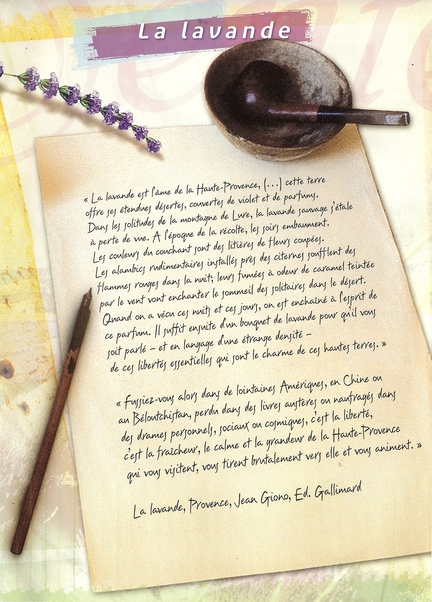 La lavande
« La lavande est l'âme de la Haute-Provence, (...) cette terre
offre ses étendues désertes, couvertes de violet et de parfums.
Dans les solitudes de la montagne de Lure, la lavande sauvage s'étale
à perte de vue. A l'époque de la récolte, les soirs embaument.
Les couleurs du couchant sont des litières de fleurs coupées.
Les alambics rudimentaires installés près des citernes soufflent des
flammes rouges dans la nuit; leurs fumées à odeur de caramel teintée
par le vent vont enchanter le sommeil des solitaires dans le désert.
Quand on a vécu ces nuits et ces jours, on est enchaîné à l'esprit de
ce parfum. Il suffit ensuite d'un bouquet de lavande pour qu'il vous
soit parlé – et en langage d'une étrange densité –
de ces libertés essentielles qui sont le charme de ces hautes terres. »
« Fussiez-vous alors dans de lointaines Amériques, en Chine ou
au Béloutchistan, perdu dans des livres austères ou naufragés dans
des drames personnels, sociaux ou cosmiques, c'est la liberté,
c'est la fraîcheur, le calme et la grandeur de la Haute-Provence
qui vous visitent, vous tirent brutalement vers elle et vous animent. »
La lavande, Provence, Jean Giono, Ed. Gallimard